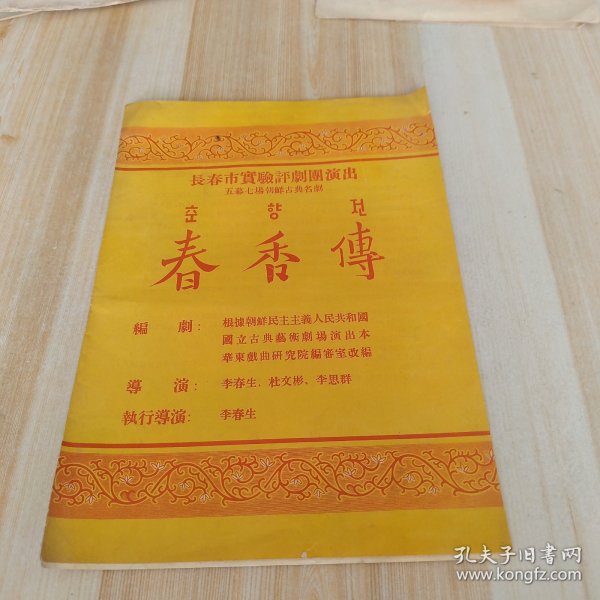 長春市實驗評劇團演出
五幕七場朝鮮古典名劇
춘향전
春香傳
編劇: 根據朝鮮民主主義人民共和國
國立古典藝術劇場演出本
華東戲曲研究院編審室改編
導演: 李春生、杜文彬、李思群
執行導演: 李春生
孔夫子旧书网
www.kongfz.com